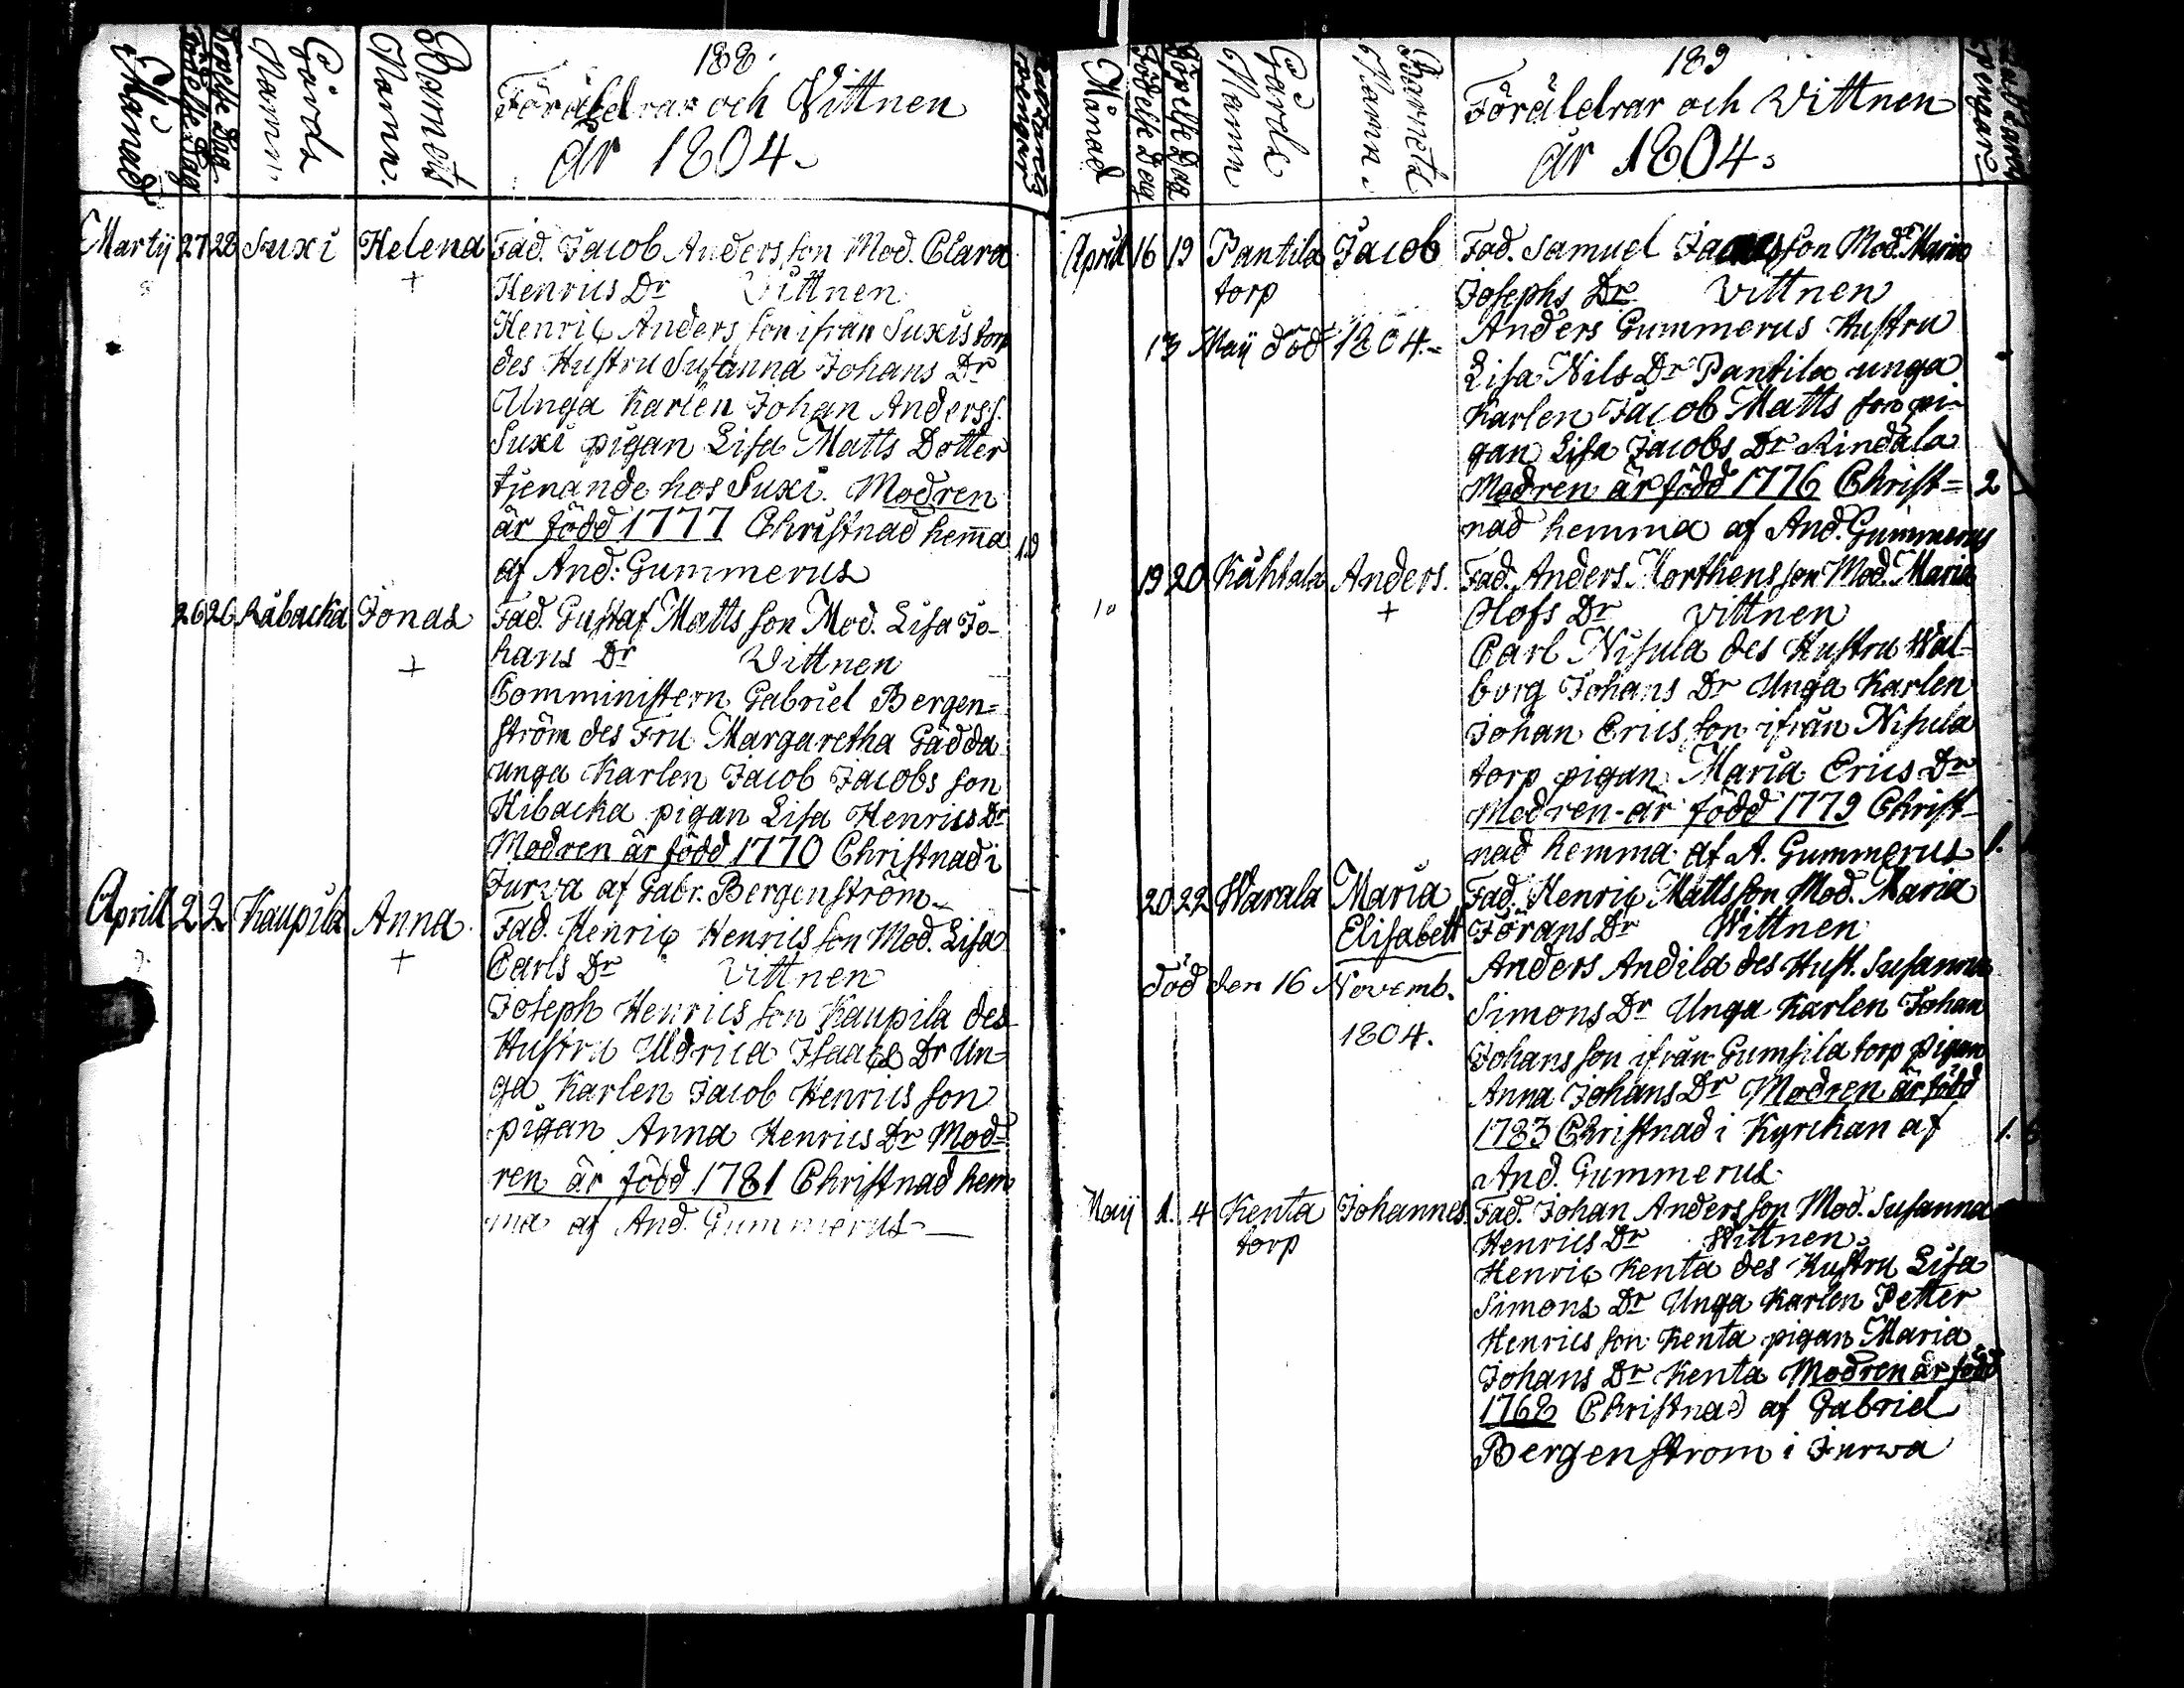 188.
Månad
Födelse Dag
Döpelse Dag
Gårds Namn
Barnets Namn.
Föräldrar och Vittnen
år 1804.
Martij 27 28 Suxi Helena Fad. Jacob Andersson Mod. Clara
+ Henrics Dr Vittnen
Henric Andersson ifrån Suxis torp
des Hustru Susanna Johans Dr
Unga Karlen Johan Anders s.
Suxi pigan Lisa Matts Dotter
tjenande hos Suxi. Modren
är född 1777 Christnad hem̅a
af And: Gummerus
26 26 Råbacka Jonas Fad. Gustaf Mattsson Mod. Lisa Jo-
+ hans Dr Vittnen
Comministern Gabriel Bergen=
ström des Fru Margaretha Gädda
unga Karlen Jacob Jacobsson
Kibacka pigan Lisa Henrics Dr
Modren är född 1770 Christnad i
Jurva af Gabr. Bergenström
Aprill 2 2 Kaupila Anna Fad. Henric Henricsson Mod. Lisa
+ Carls Dr Vittnen
Joseph Henricsson Kaupila des
Hustru Uldrica Isaacs Dr Un=
ga Karlen Jacob Henricsson
pigan Anna Henrics Dr Mod=
ren är född 1781 Christnad hem
ma af And. Gummerus
189
Månad
Födelse Dag
Döpelse Dag
Gårds Namn
Barnets Namn
Föräldrar och Vittnen
år 1804.
April 16 19 Pantila Jacob Fad. Samuel Mod. Maria
torp Josephs Dr Vittnen
13 Maij död 1804. Anders Gummerus Hustru
Lisa Nils Dr Pantila unga
Karlen Jacob Mattsson pi-
gan Lisa Jacobs Dr Rindala
Modren är född 1776 Christ= 2
nad hemma af And. Gummerus
19 20 Kåhtala Anders. Fad. Anders Morthensson Mod. Maria
+ Olofs Dr Vittnen
Carl Nisula des Hustru Wal-
borg Johans Dr Unga Karlen
Johan Ericsson ifrån Nisula
torp pigan Maria Erics Dr
Modren är född 1779 Christ-
nad hemma af A. Gummerus 1.
20 22 Warala Maria Fad. Henric Mattsson Mod. Maria
Elisabett Görans Dr Wittnen
död den 16 Novemb. Anders Andila des Hust. Susanna
1804. Simons Dr Unga Karlen Johan
Johansson ifrån Gumsila torp Pigan
Anna Johans Dr Modren är född
1783 Christnad i Kyrckan af 1.
And. Gummerus
Maij 1. 4 Kenta Johannes. Fad. Johan Andersson Mod. Susanna
torp Henrics Dr Wittnen
Henric Kenta des Hustru Lisa
Simons Dr Unga Karlen Petter
Henricsson Kenta pigan Maria
Johans Dr Kenta Modren är född
1768 Christnad af Gabriel
Bergenstrom i Jurwa